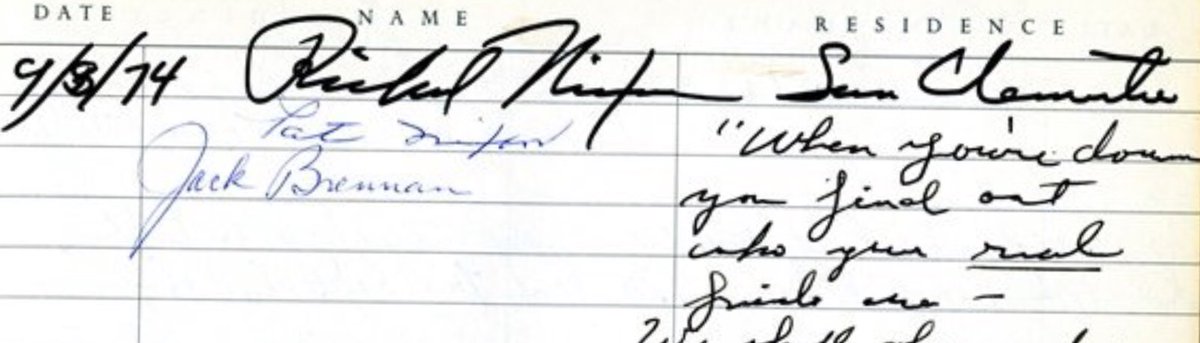 DATE NAME RESIDENCE
9/8/74 Richard Nixon San Clemente
Pat Nixon
"When you're down
Jack Brennan
you find out
who your real
friends are —
We shall